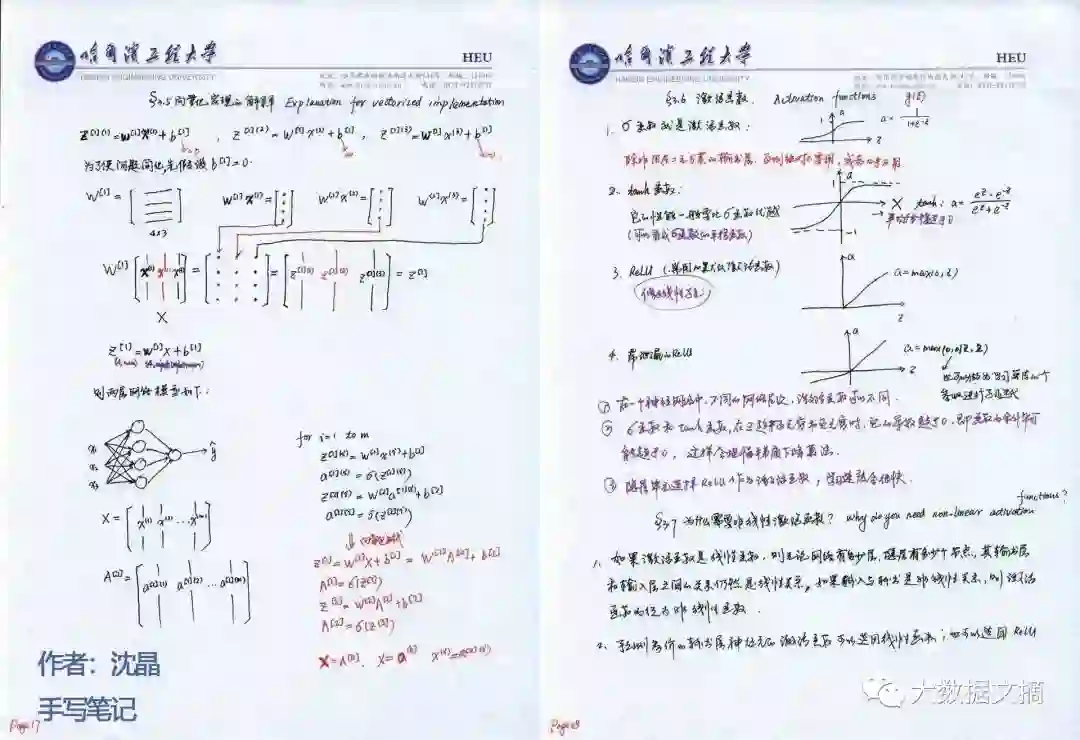 哈尔滨工程大学
HEU
HARBIN ENGINEERING UNIVERSITY
§3.5 向量化实现的解释 Explanation for vectorized implementation
z[1](1)=W[1]x(1)+b[1], z[1](2)=W[1]x(2)+b[1], z[1](3)=W[1]x(3)+b[1]
为了使问题简化,先假设 b[1]=0.
W[1]= W[1]x(1)= W[1]x(2)= W[1]x(3)=
4x3
W[1] x(1) x(2) x(3) = = z[1](1) z[1](2) z[1](3) = z[1]
X
z[1]=W[1]X+b[1]
则两层网络模型如下:
x1
x2
x3
ŷ
X= x(1) x(2) ... x(m)
A[1]= a[1](1) a[1](2) ... a[1](m)
for i=1 to m
z[1](i)=W[1]x(i)+b[1]
a[1](i)=σ(z[1](i))
z[2](i)=W[2]a[1](i)+b[2]
a[2](i)=σ(z[2](i))
⇓ 向量化
z[1]=W[1]X+b[1] = W[1]A[0]+b[1]
A[1]=σ(z[1])
z[2]=W[2]A[1]+b[2]
A[2]=σ(z[2])
X=A[0]. x(i)=a[0](i)
作者：沈晶
手写笔记
Page 17
哈尔滨工程大学
HEU
HARBIN ENGINEERING UNIVERSITY
§3.6 激活函数. Activation functions g(z)
1. σ函数就是激活函数: a= 1/(1+e^-z)
除非用在二元分类的输出层,否则绝对不要用,或者几乎不用
2. tanh函数: a
1
-1
tanh: a= (e^z-e^-z)/(e^z+e^-z)
它的性能一般要比σ函数优越
(可以看成σ函数的平移函数)
3. ReLU (常用的默认激活函数) a
a=max(0,z)
z
4. 带泄漏的ReLU a
a=max(0.01z,z)
z
① 在一个神经网络中,不同的网络层次,激活函数可以不同.
② σ函数和tanh函数,在z趋于正无穷和负无穷时,它的导数趋于0,即函数的斜率可
能趋于0, 这样会拖慢梯度下降算法.
③ 隐层单元选择ReLU作为激活函数,
§3.7 为什么需要非线性激活函数? why do you need non-linear activation functions?
1. 如果激活函数是线性函数,则无论网络有多少层,隐层有多少个节点,其输出层
和输入层之间的关系仍然是线性关系,如果输入与输出是非线性关系,则激活
函数必须为非线性函数.
2. 输出层神经元的激活函数可以选用线性函数;也可以选用ReLU
大数据文摘
Page 18